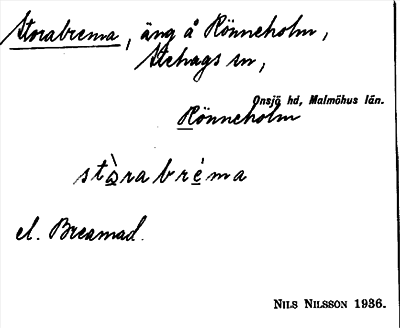 Storabrema, äng å Rönneholm,
Stehags sn,
Onsjö hd, Malmöhus län.
Rönneholm
stɔ̀rabréma
el. Breamad.
NILS NILSSON 1936.